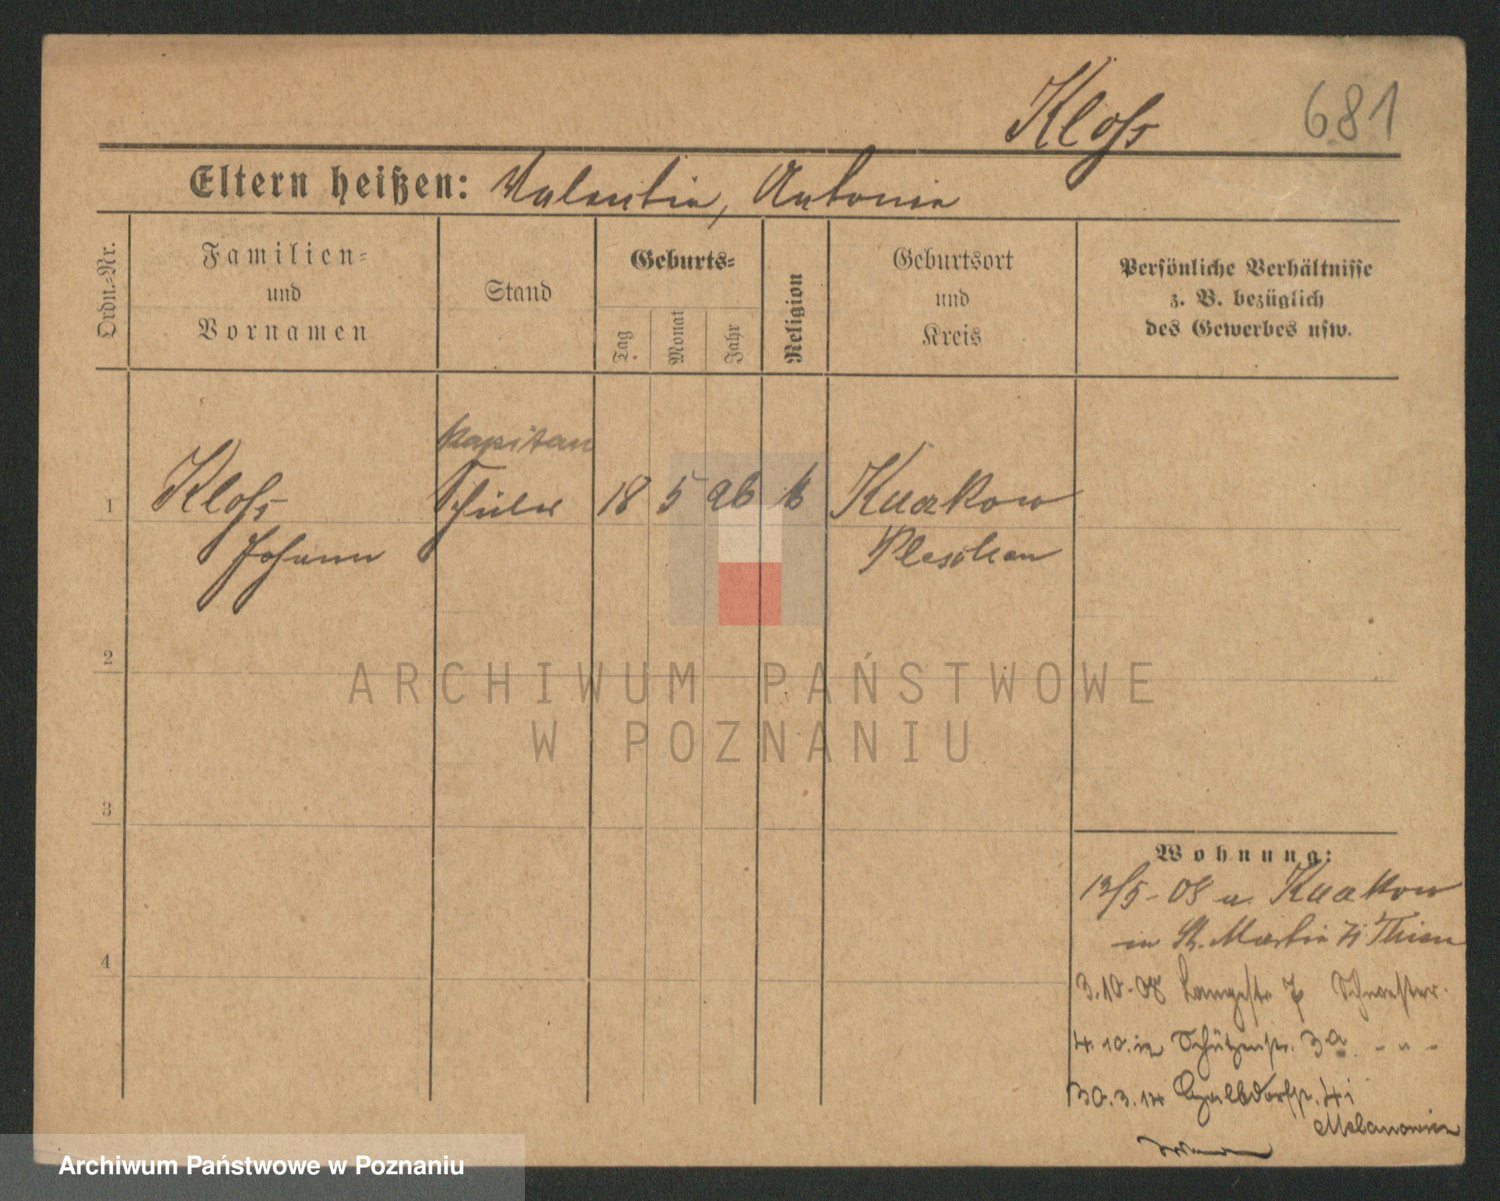 Kloß
681
Eltern heißen: Valentin, Antonie
Ordn.-Nr.
Familien-
und
Vornamen
Stand
Geburts-
Tag
Monat
Jahr
Religion
Geburtsort
und
Kreis
Persönliche Verhältnisse
z. B. bezüglich
des Gewerbes usw.
Kapitan
1 Kloß Schüler 18 5 96 k Kuczkow
Johann Pleschen
2
3
4
ARCHIWUM PAŃSTWOWE
W POZNANIU
Wohnung:
13/5-08 v. Kuczkow
in St. Martin
3.10.08 Langestr. 7 Schwester.
4.10.12 Schützenstr. 3a - " -
30.3.14
Archiwum Państwowe w Poznaniu